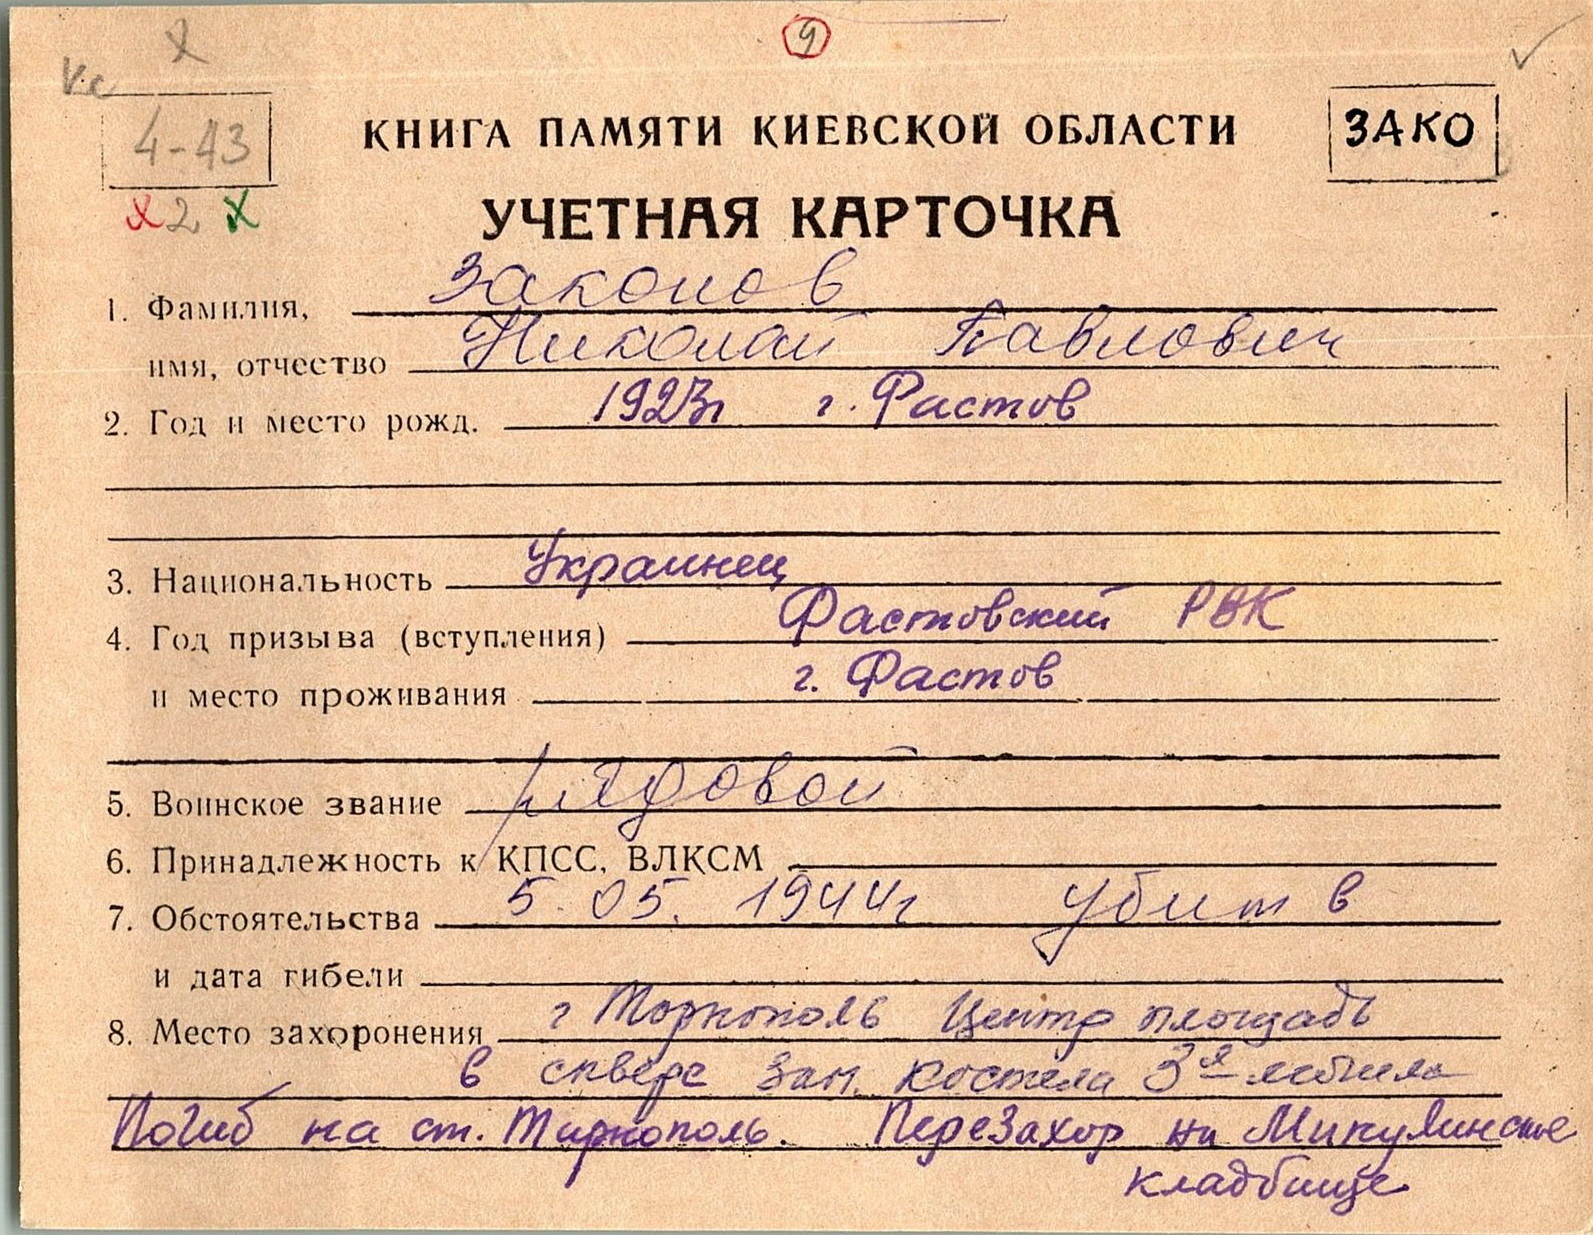 9
4-43
КНИГА ПАМЯТИ КИЕВСКОЙ ОБЛАСТИ
ЗАКО
х 2 х
УЧЕТНАЯ КАРТОЧКА
1. Фамилия, Законов
имя, отчество Николай Павлович
2. Год и место рожд. 1923г г. Фастов
3. Национальность Украинец
4. Год призыва (вступления) Фастовский РВК
и место проживания г. Фастов
5. Воинское звание рядовой
6. Принадлежность к КПСС, ВЛКСМ
7. Обстоятельства 5.05.1944г убит в
и дата гибели
8. Место захоронения г Торнополь Центр площадь
в сквере зап. костела 3я могила
Погиб на ст. Тирнополь. Перезахор на Микулинское
кладбище